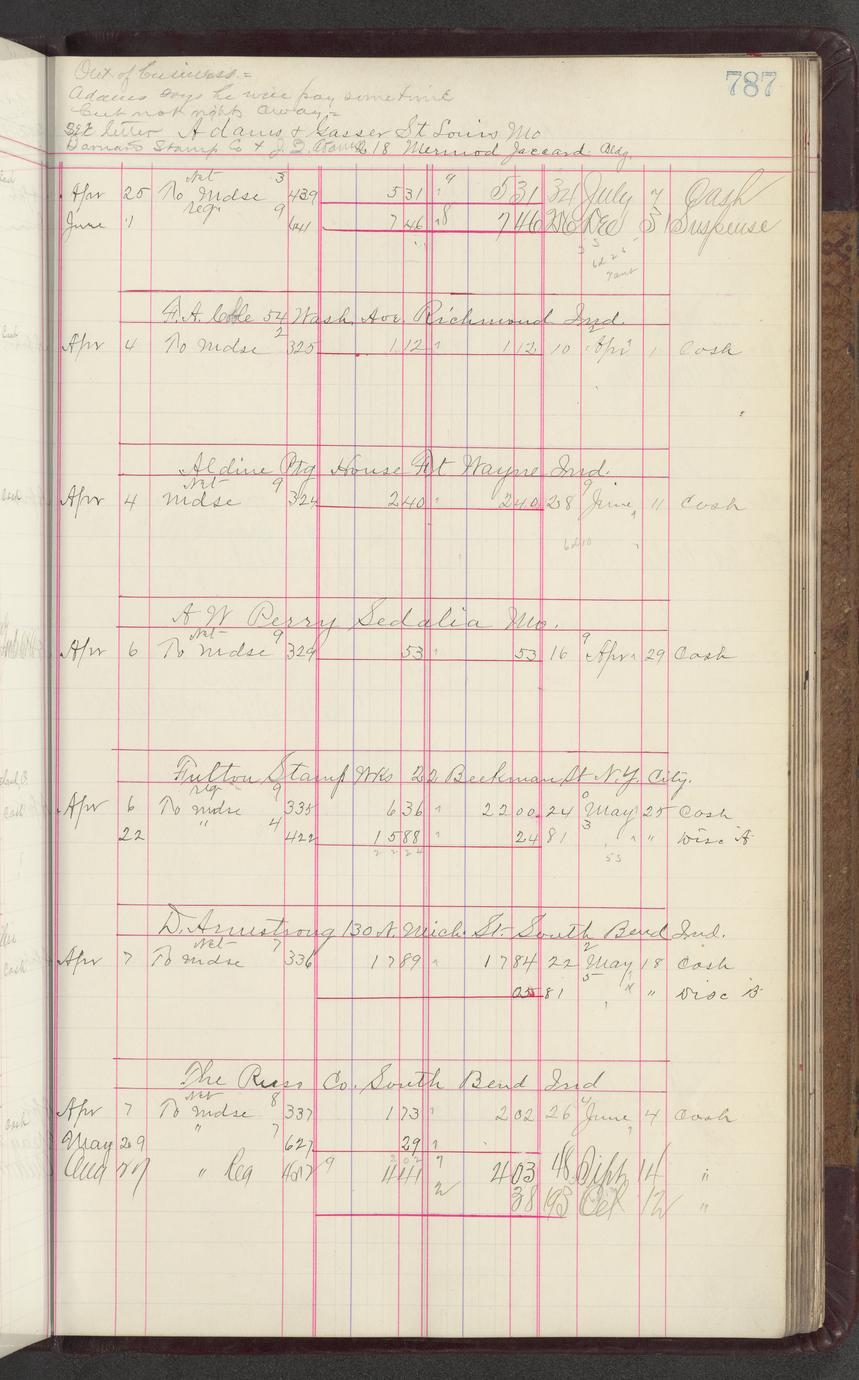 787
Out of business =
Adams says he will pay sometime
but not right away =
see letter Adams & Gasser St Louis Mo
Barnard Stamp Co & J. Q. Adams 618 Mermod Jaccard Bldg.
Net 3 9
Apr 25 To Mdse 439 531 531 34 July 7 Cash
reg 9 8
June 1 641 746 746 Dec 31 Suspense
F. A. 54 Wash. Ave. Richmond Ind.
2 2
Apr 4 To Mdse 325 112 " 112 10 Apr 1 Cash
Aldine Ptg House Ft Wayne Ind.
Net 9 9
Apr 4 Mdse 324 240 " 240 28 June 11 Cash
6210
A W Perry Sedalia Mo.
Net 9 9
Apr 6 To Mdse 329 53 " 53 16 Apr 29 Cash
Fulton Stamp Wks 22 Beekman St N.Y. City.
reg 9 0
Apr 6 To Mdse 335 636 " 2200 24 May 25 Cash
" 4 3
22 422 1588 " 24 81 " " Disc A
2224 53
D. Armstrong 130 N. Mich. St. South Bend Ind.
Net 7 2
Apr 7 To Mdse 336 1789 " 1784 22 May 18 Cash
5
05 81 " " Disc B
The Russ Co. South Bend Ind
Net 8 4
Apr 7 To Mdse 337 173 " 202 26 June 4 Cash
May 29 " 7 627 29 "
202
Aug 27 " Reg 9 441 7 403 48 Sept 14 "
2 38 93 Oct 12 "